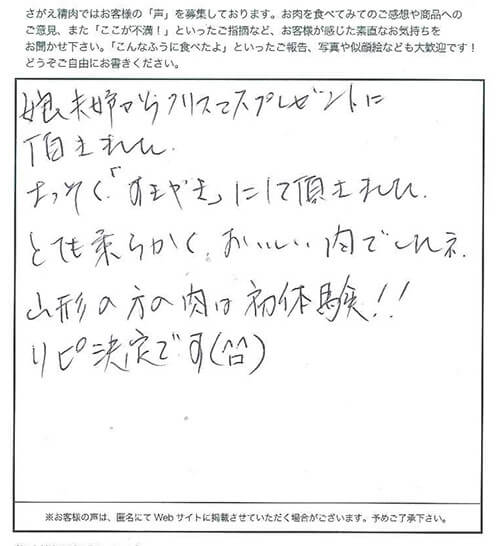 さがえ精肉ではお客様の「声」を募集しております。お肉を食べてみてのご感想や商品への
ご意見、また「ここが不満!」といったご指摘など、お客様が感じた素直なお気持ちを
お聞かせ下さい。「こんなふうに食べたよ」といったご報告、写真や似顔絵なども大歓迎です!
どうぞご自由にお書きください。
娘夫婦からクリスマスプレゼントに
頂きました。
さっそく「すきやき」にして頂きました。
とても柔らかく、おいしい肉でしたネ.
山形の方の肉は初体験!!
リピ決定です(^^)
※お客様の声は、匿名にて Web サイトに掲載させていただく場合がございます。予めご了承下さい。